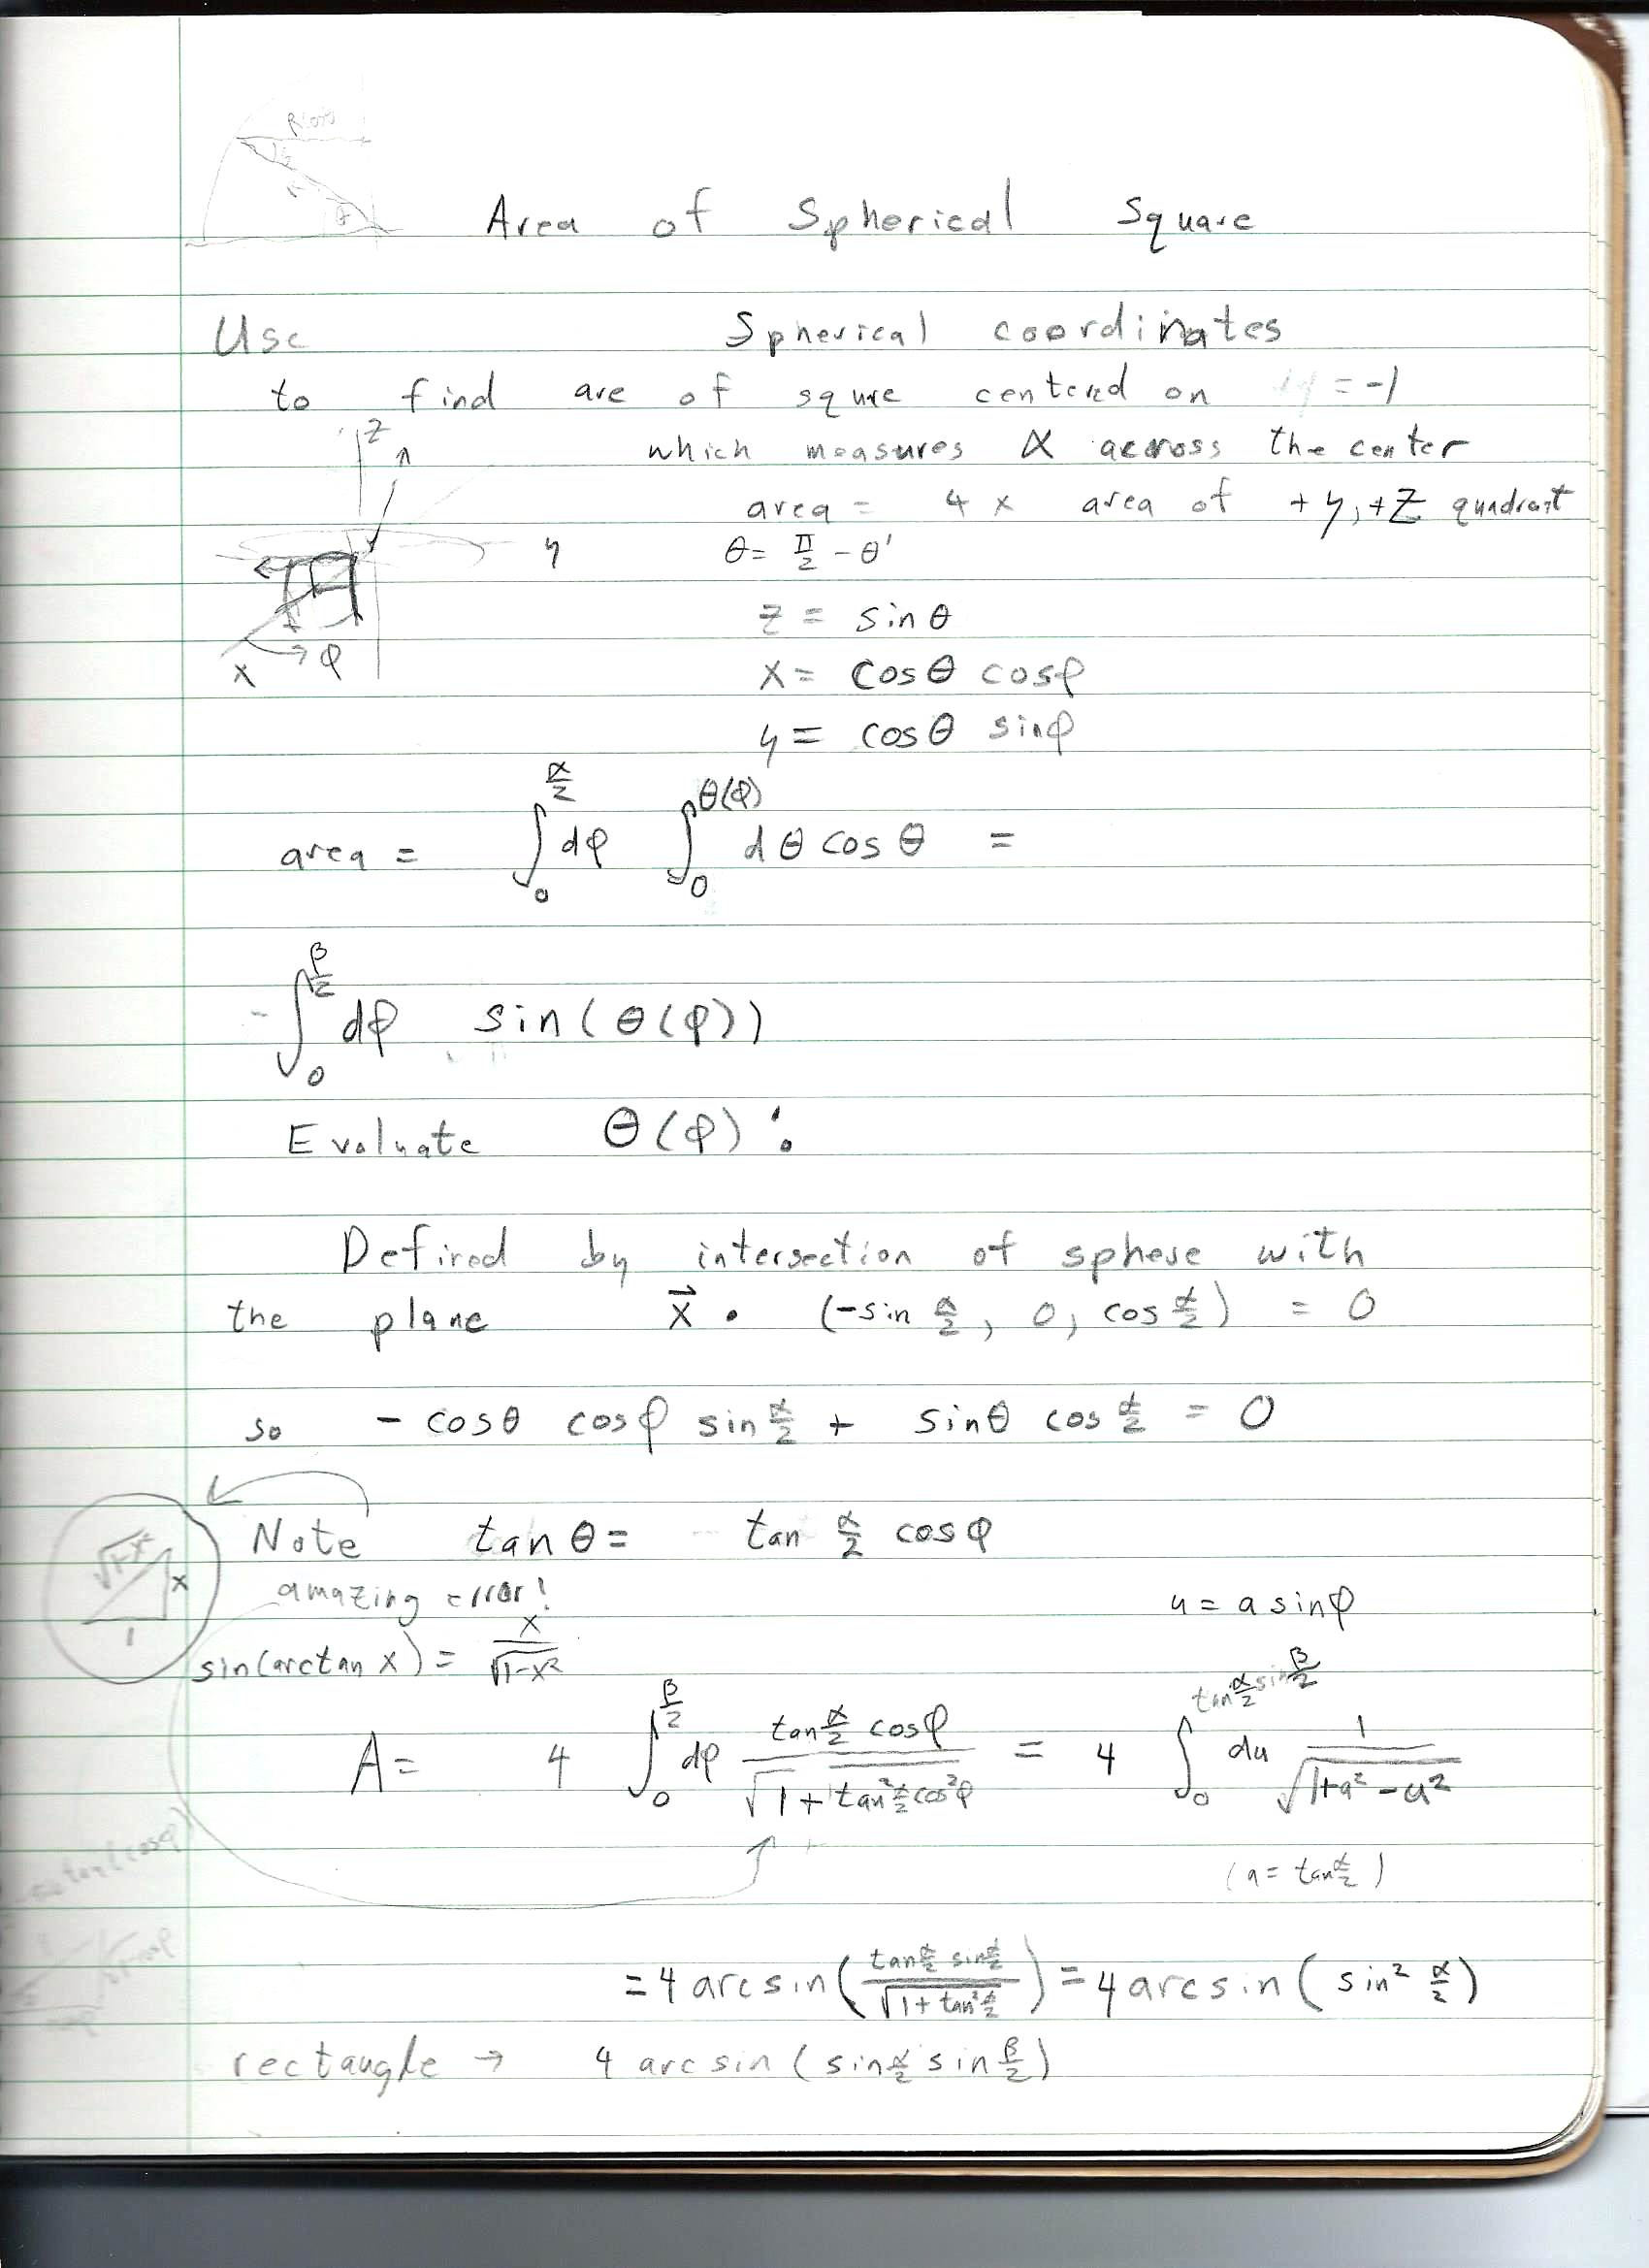 Area of Spherical Square
Use Spherical coordinates
to find are of squre centerd on = -1
which measures α across the center
area = 4 x area of +y, +z quadrant
z
n
y
x φ
θ = π/2 - θ'
z = sin θ
x = cos θ cos φ
y = cos θ sin φ
area = ∫_0^{α/2} dφ ∫_0^{θ(φ)} dθ cos θ =
∫_0^{β/2} dφ sin(θ(φ))
Evaluate θ(φ):
Defined by intersection of sphere with
the plane x⃗ • (-sin α/2, 0, cos α/2) = 0
so - cosθ cosφ sin α/2 + sinθ cos α/2 = 0
Note tan θ = tan α/2 cos φ
amazing error!
x
1
u = a sinφ
sin(arctan x) = x/√(1-x²)
A = 4 ∫_0^{β/2} dφ (tan α/2 cosφ)/√(1 + tan² α/2 cos²φ) = 4 ∫_0^{tan α/2 sin β/2} du 1/√(1+a²-u²)
(a = tan α/2)
= 4 arcsin( (tan α/2 sin α/2)/√(1+ tan² α/2) ) = 4 arcsin( sin² α/2 )
rectangle → 4 arcsin ( sin α/2 sin β/2 )